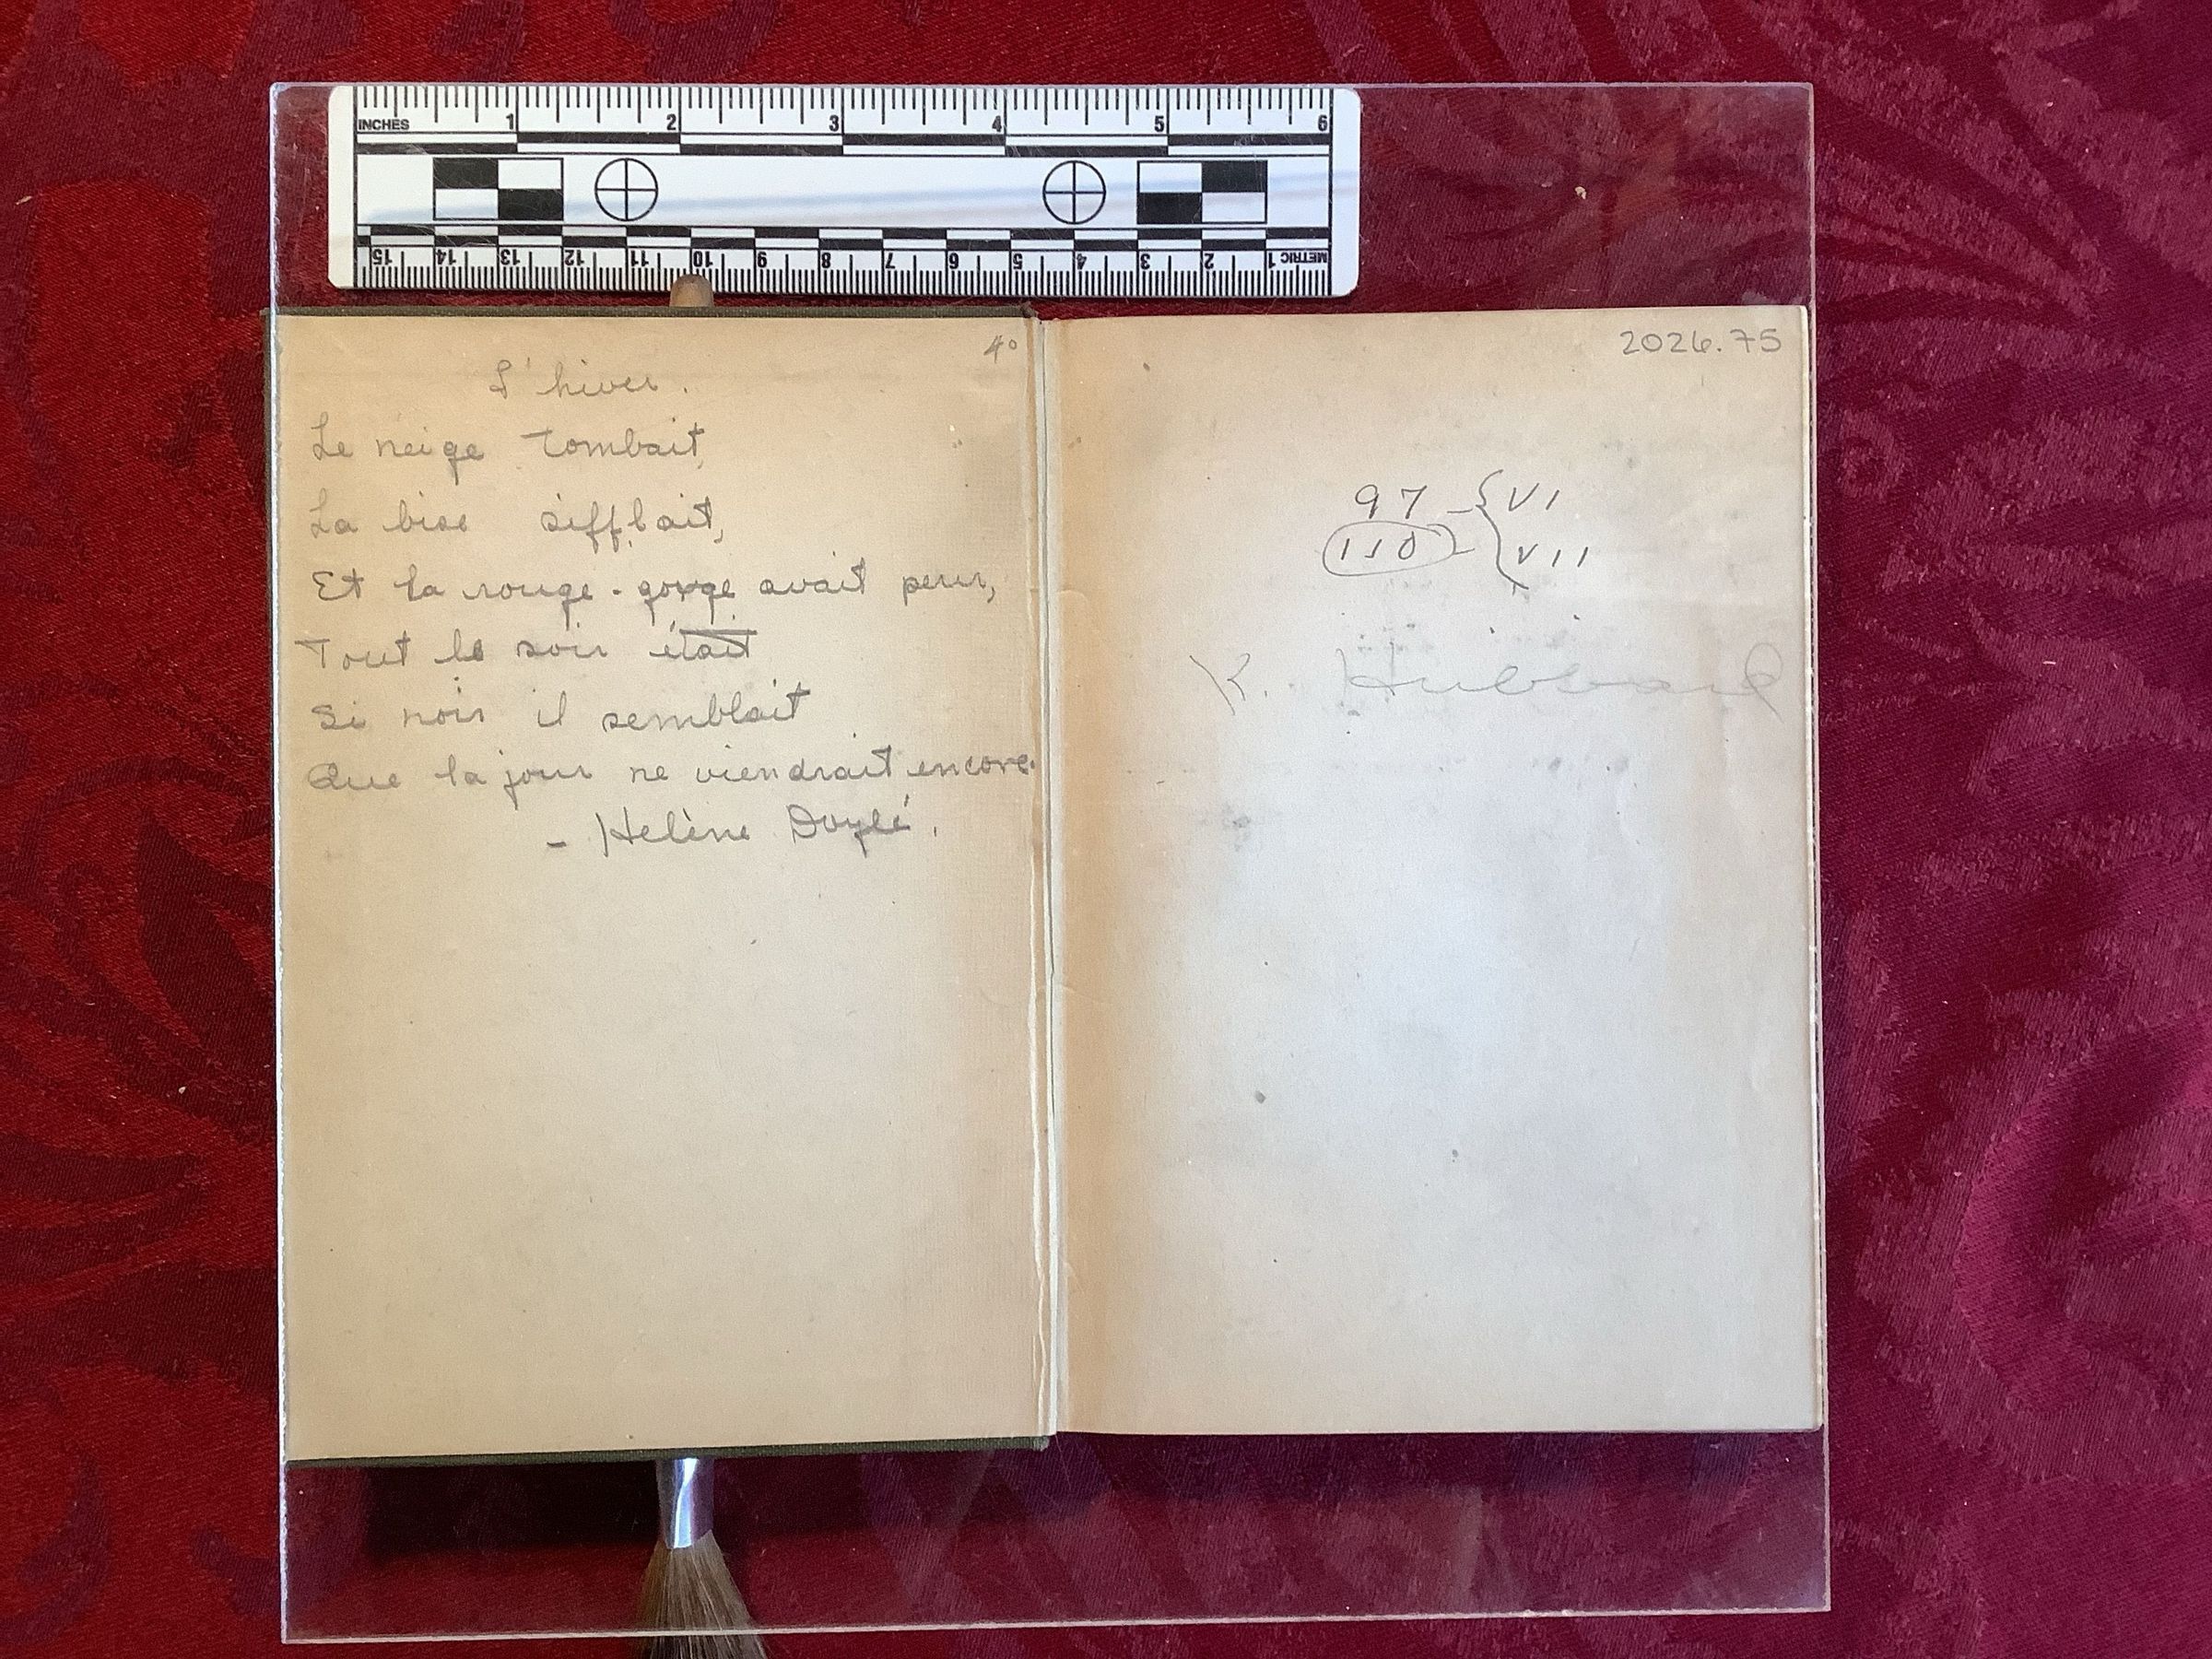 INCHES 1 2 3 4 5 6
15 14 13 12 11 10 9 8 7 6 5 4 3 2 1 METRIC
4°
L'hiver.
Le neige tombait,
La bise sifflait,
Et la rouge-gorge avait peur,
Tout le soir était
Si noir il semblait
Que la jour ne viendrait encore.
- Helène Doylé.
2026.75
97 - { VI
110 - { VII
K. Hubbard